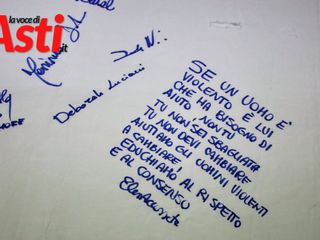 la voce di
Asti
.it
Deborah Luciani
SE UN UOMO E'
VIOLENTO È LUI
CHE HA BISOGNO DI
AIUTO NON TU
TU NON SEI SBAGLIATA
TU NON DEVI CAMBIARE
AIUTIAMO GLI UOMINI VIOLENTI
A CAMBIARE
E EDUCHIAMO AL RISPETTO
E AL CONSENSO